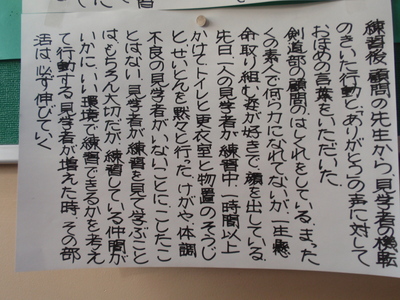 練習後、顧問の先生から、見学者の機転
のきいた行動と、「ありがとう」の声に対して
おほめの言葉をいただいた。
剣道部の顧問のはしくれをしている。まった
くの素人で何ら力になれてないが、一生懸
命取り組む姿が好きで、顔を出している。
先日、一人の見学者が、練習中、一時間以上
かけて、トイレと更衣室と物置のそうじ
と、せいとんを黙々と行った。けがや、体調
不良の見学者がいないことに、こしたこ
とはない。見学者が、練習を見て学ぶこと
はもちろん大切だが、練習している仲間が
いかに、いい環境で練習できるかを考え
て行動する。見学者が増えた時、その部
活は、必ず伸びていく